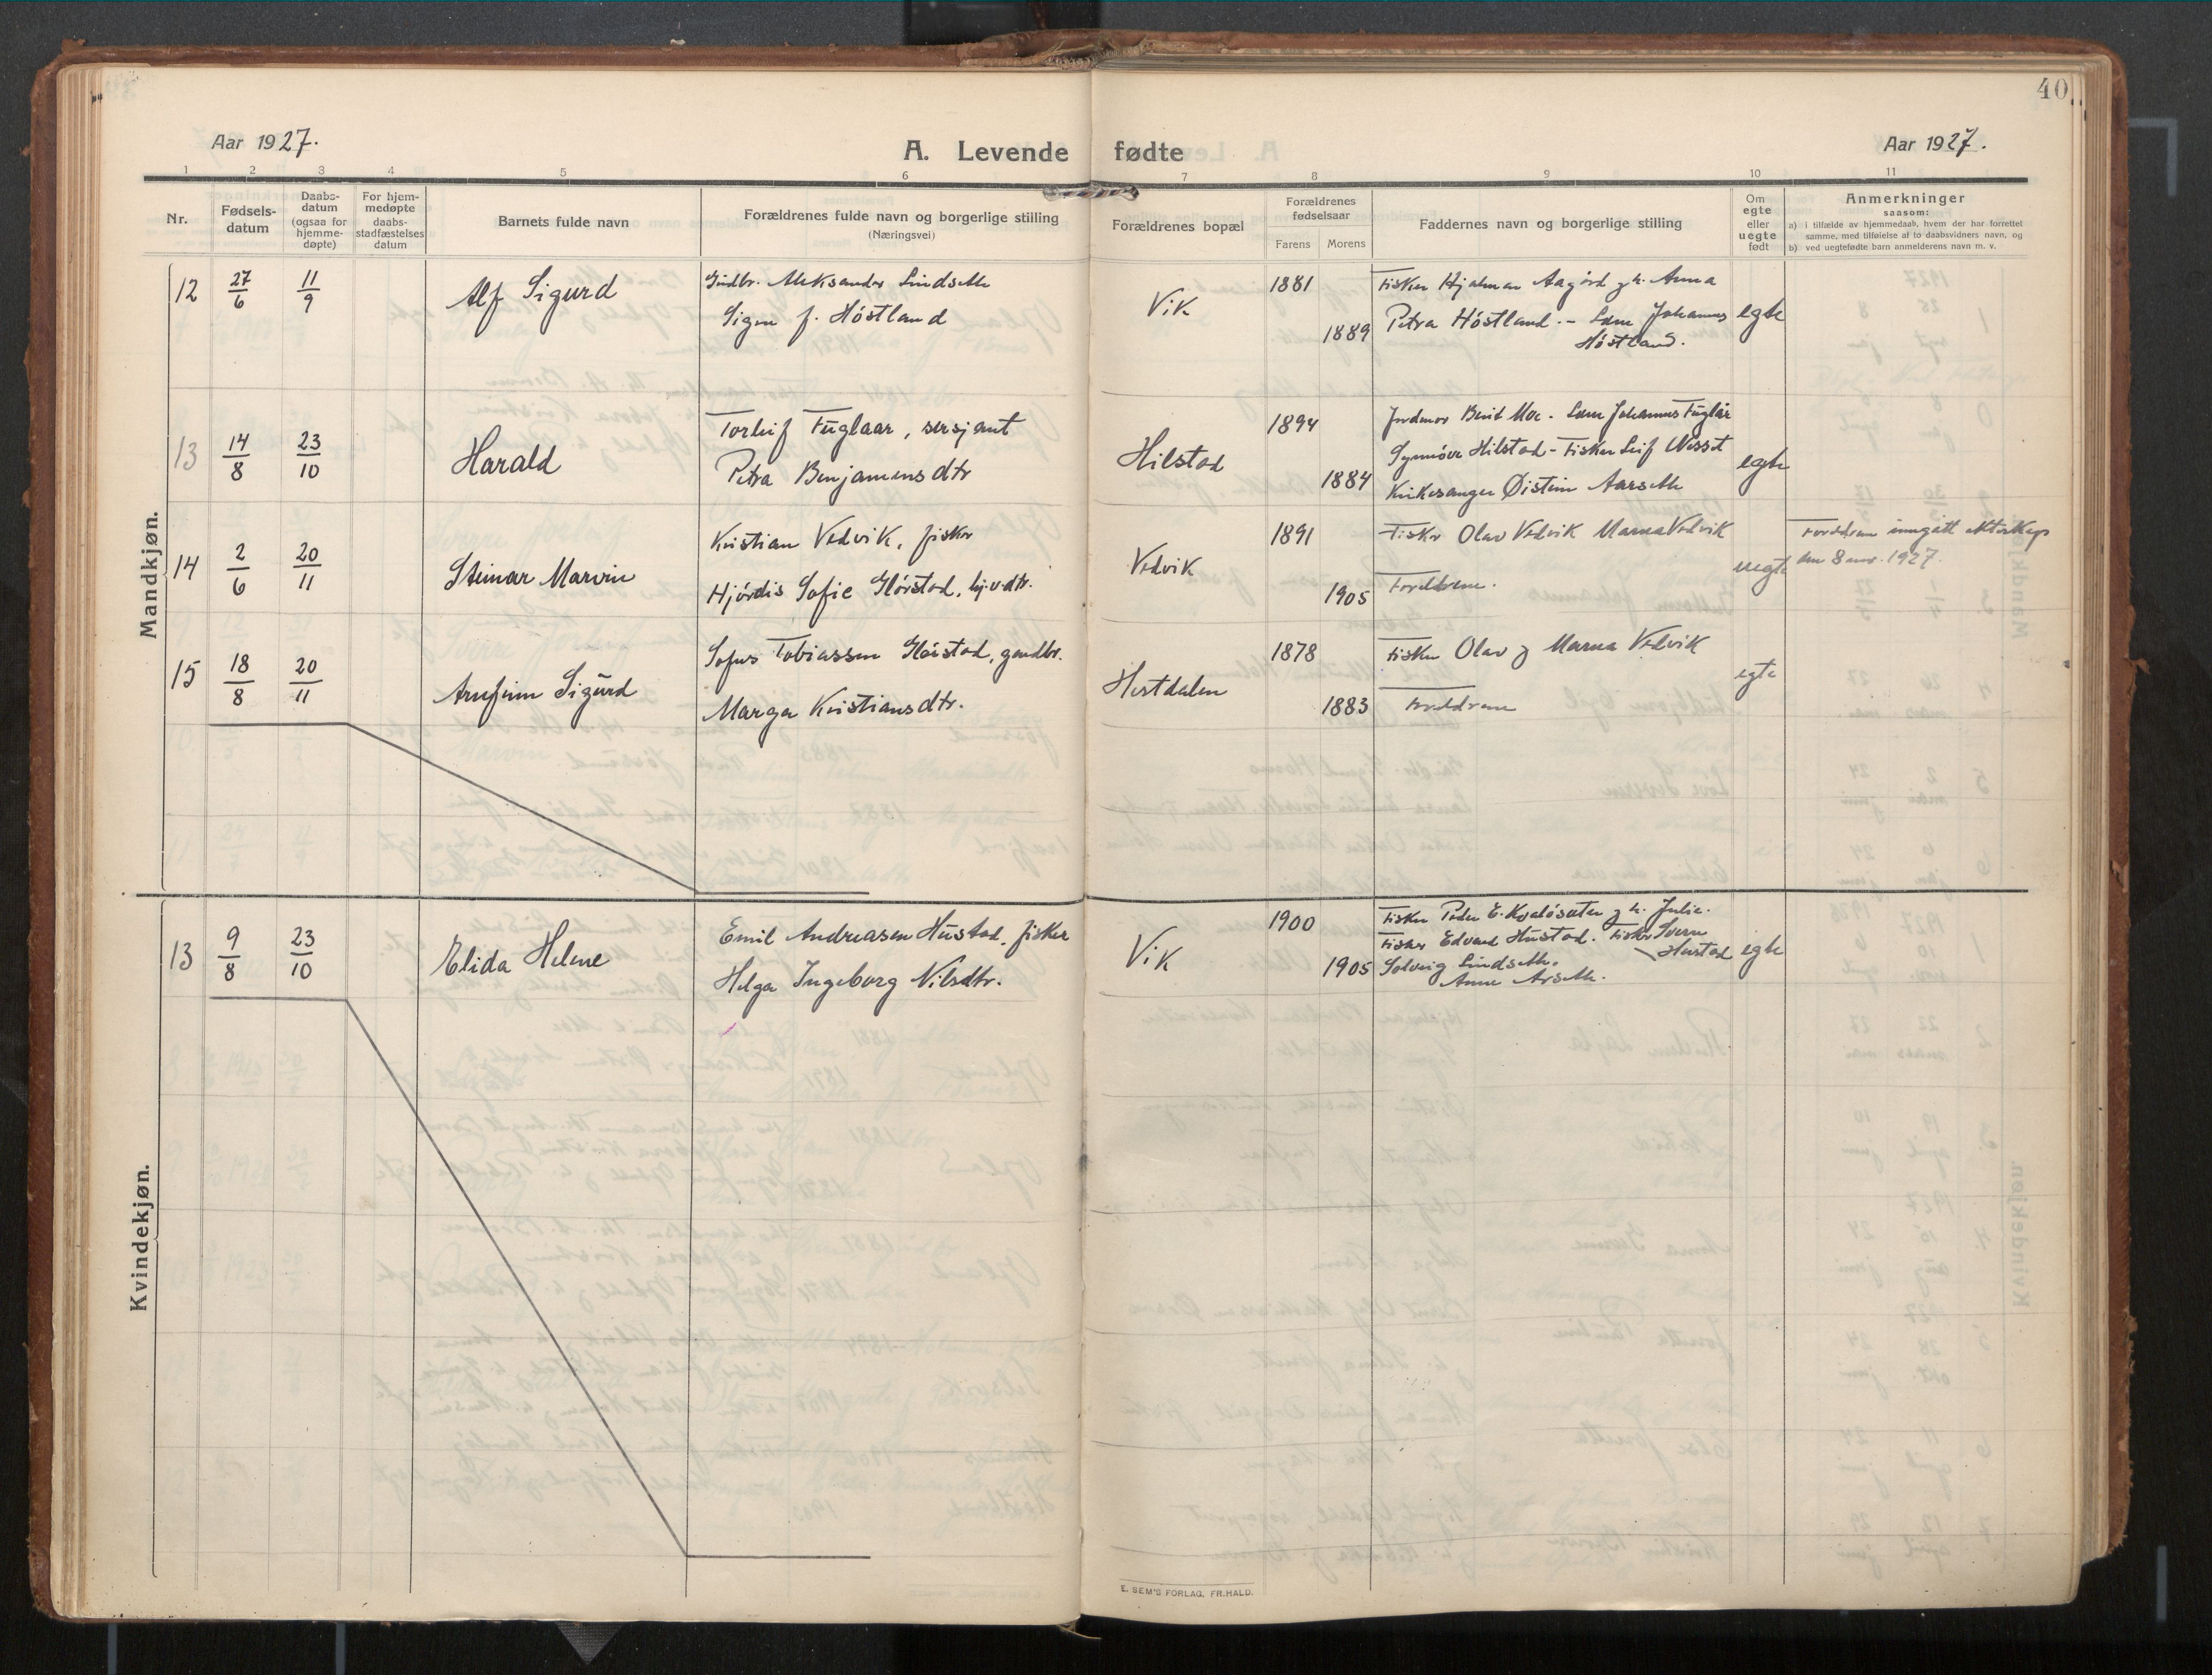 40
Aar 1927.
A. Levende fødte
Aar 1927.
1 2 3 4 5 6 7 8 9 10 11
Nr.
Fødsels-
datum
Daabs-
datum
(ogsaa for
hjemme-
døpte)
For hjem-
medøpte
daabs-
stadfæstelses
datum
Barnets fulde navn
Forældrenes fulde navn og borgerlige stilling
(Næringsvei)
Forældrenes bopæl
Forældrenes
fødselsaar
Farens Morens
Faddernes navn og borgerlige stilling
Om
egte
eller
uegte
født
Anmerkninger
saasom:
a) i tilfælde av hjemmedaab, hvem der har forrettet
samme, med tilføielse af to daabsvidners navn, og
b) ved uegtefødte barn anmelderens navn m. v.
Mandkjøn.
12 27/6 11/9 Alf Sigurd
Gårdbr. Aleksander Lindseth
Signe f. Høstland
Vik
1881
1889
Fisker Hjalmar Aagård g h. Anna
Petra Høstland. - Lærer Johannes
Høstland.
egte
13 14/8 23/10 Harald
Torleif Fuglaar, sersjant
Petra Benjaminsdtr
Hilstad
1894
1884
Jordmor Berit Moe. Lærer Johannes Fuglår
Synnøve Hilstad - Fisker Leif
Kirkesanger Øistein Aarseth
egte
14 2/6 20/11 Steinar Marvin
Kristian Vedvik, fisker
Hjørdis Sofie Glørstad, hj.v.dtr.
Vedvik
1891
1905
Fisker Olav Vedvik Marna Vedvik
Foreldrene.
uegte
Foreldrene inngått ekteskap
den 8 nov. 1927.
15 18/8 20/11 Arnfinn Sigurd
Sofus Tobiassen Glørstad, gårdbr.
Marga Kristiansdtr.
Hestdalen
1878
1883
Fisker Olav g Marna Vedvik
Foreldrene
egte
Kvindekjøn.
13 9/8 23/10 Elida Helene
Emil Andreasen Hustad, fisker
Helga Ingeborg Nilsdtr.
Vik
1900
1905
Fisker Peder E. Kvaløsæter g h. Julie.
Fisker Edvard Hustad. Fisker Sverre
Hustad
Solveig Lindseth.
Anne Arseth.
egte
E. SEM'S FORLAG, FR.HALD.